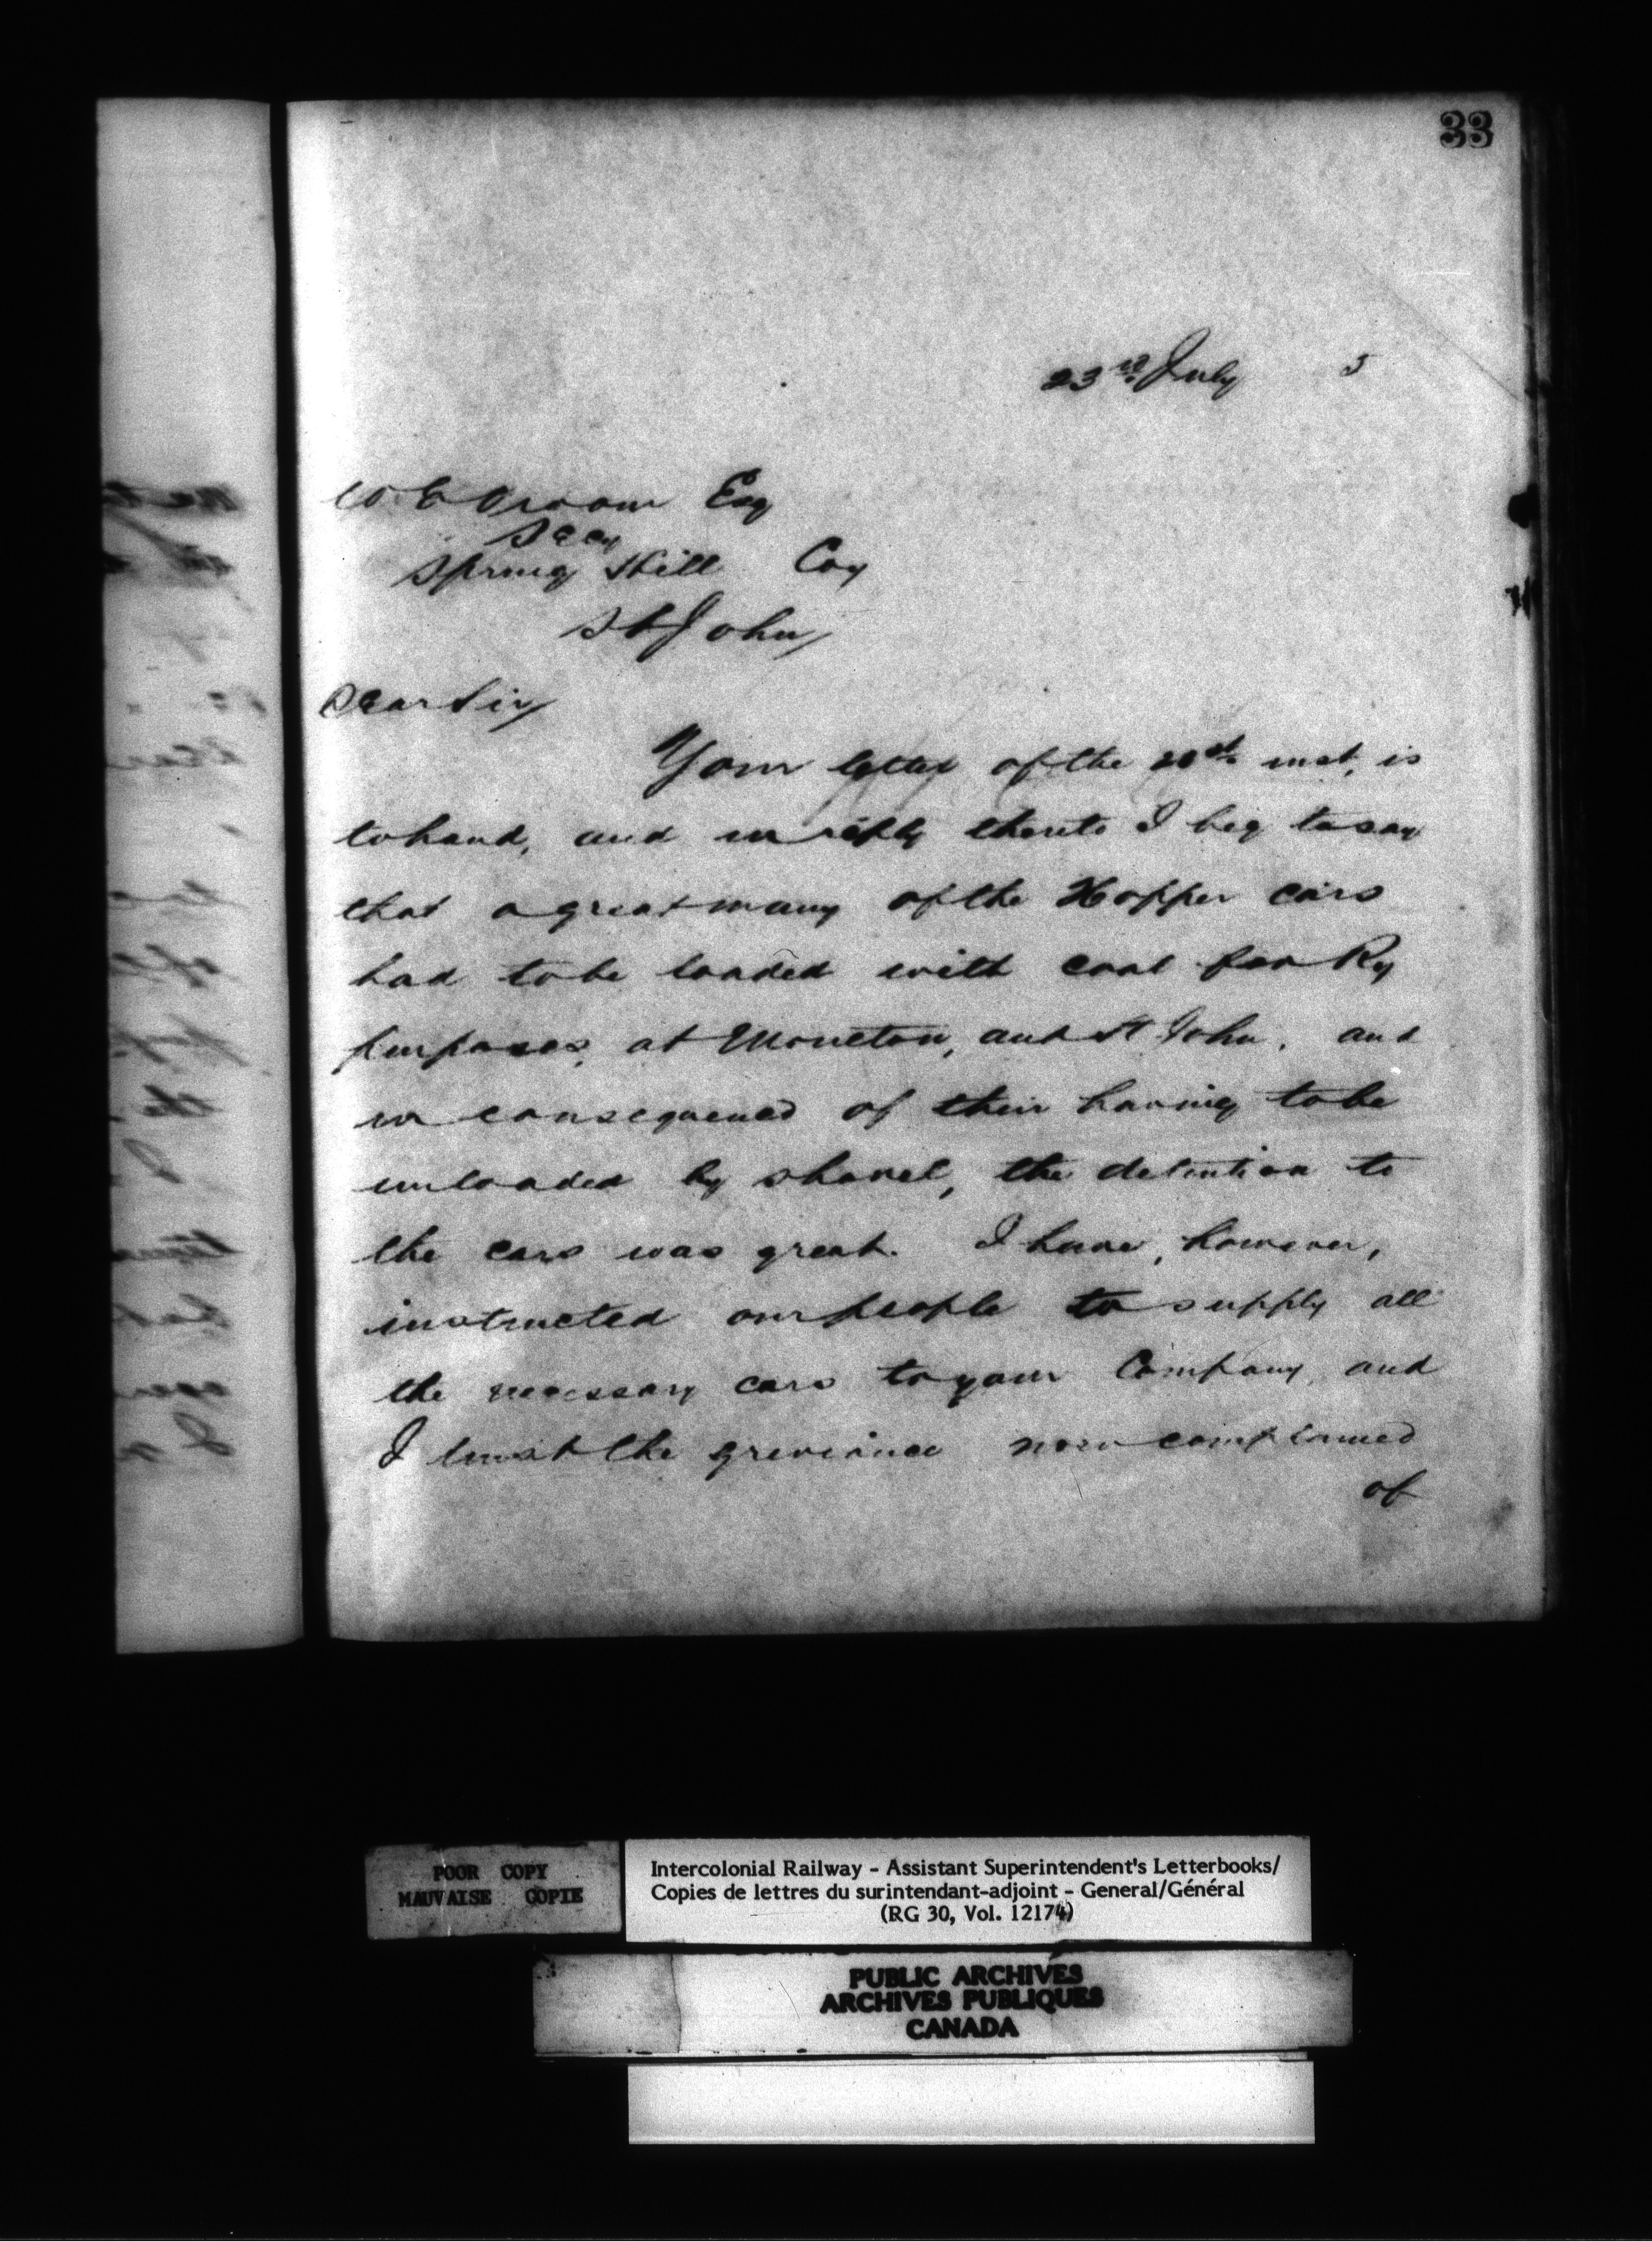 33
23rd July 5
W. E. Vroom Esq
Secy
Spring Hill Coy
St John
Dear Sir
Your letter of the 20th inst, is
to hand, and in reply thereto I beg to say
that a great many of the Hopper cars
had to be loaded with coal for Ry
purposes, at Moncton, and St John, and
in consequence of their having to be
unloaded by shovel, the detention to
the cars was great. I have, however,
instructed our people to supply all
the necessary cars to your Company, and
I trust the grievance now complained
of
POOR COPY
MAUVAISE COPIE
Intercolonial Railway - Assistant Superintendent's Letterbooks/
Copies de lettres du surintendant-adjoint - General/Général
(RG 30, Vol. 12174)
PUBLIC ARCHIVES
ARCHIVES PUBLIQUES
CANADA